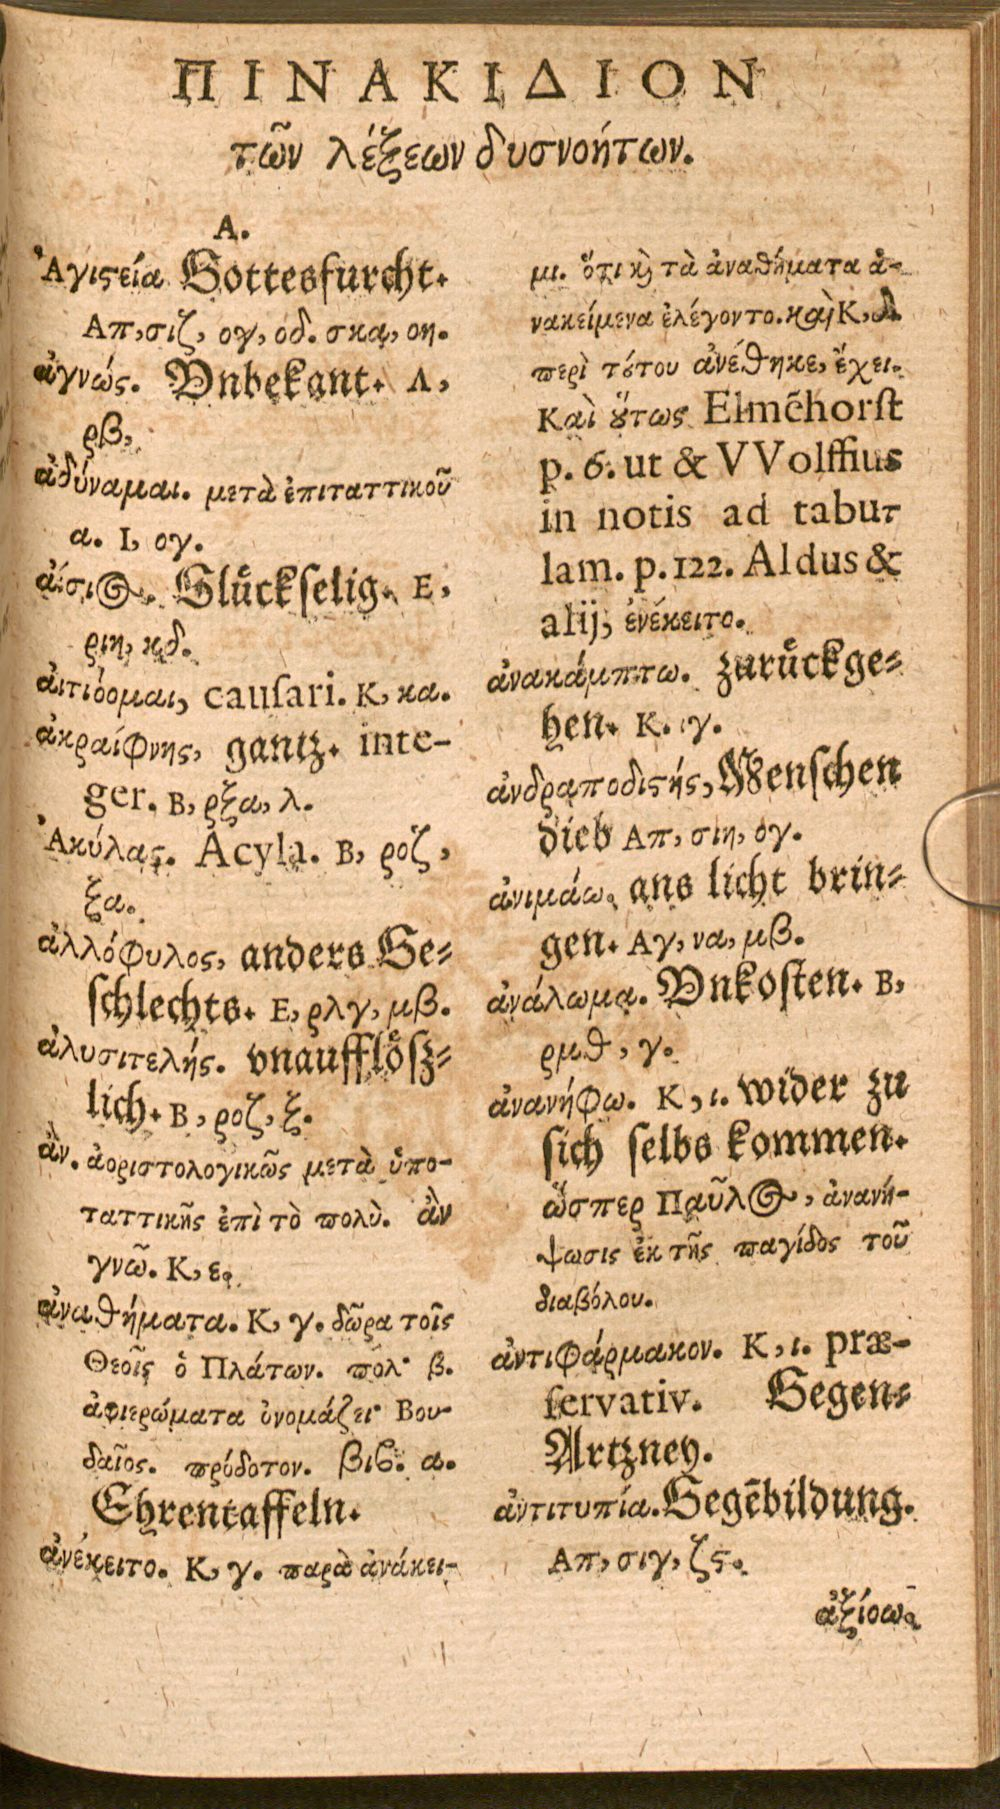 ΠΙΝΑΚΙΔΙΟΝ
τῶν λέξεων δυσνοήτων.
Α.
Ἁγιϛεία Gottesfurcht.
Απ, σιζ, ογ, οδ. σκα, οη.
ἀγνώς. Vnbekant. Λ,
ρβ,
ἀδύναμαι. μετὰ ἐπιταττικοῦ
α. Ι, ογ.
αἴσιος. Gluͤckſelig. Ε,
ριη, κδ.
αἰτιόομαι, cauſari. Κ, κα.
ἀκραίφνης, gantz. inte-
ger. Β, ρξα, λ.
Ἀκύλας. Acyla. Β, ροζ,
ξα.
ἀλλόφυλος, anders Ge⸗
ſchlechts. Ε, ρλγ, μβ.
ἀλυσιτελής. vnauffloͤſz⸗
lich. Β, ροζ, ξ.
ἂν. ἀοριστολογικῶς μετὰ ὑπο-
ταττικῆς ἐπὶ τὸ πολὺ. ἂν
γνῶ. Κ, ε.
ἀναθήματα. Κ, γ. δῶρα τοῖς
Θεοῖς ὁ Πλάτων. πολ· β.
ἀφιερώματα ὀνομάζει· Βου-
δαῖος. πρόδοτον. βιϐ. α.
Ehrentaffeln.
ἀνέκειτο. Κ, γ. παρὰ ἀνάκει-
μι. ὅτι ϗ τὰ ἀναθήματα ἀ-
νακείμενα ἐλέγοντο. καὶ Κ, λ
περὶ τȣ́του ἀνέθηκε, ἔχει.
Καὶ ȣ̔́τως Elmẽhorſt
p. 6. ut & VVolffius
in notis ad tabu-
lam. p. 122. Aldus &
alij, ἐνέκειτο.
ἀνακάμπτω. zuruͤckge⸗
hen. Κ. γ.
ἀνδραποδιϛής, Menſchen
dieb Απ, σιη, ογ.
ἀνιμάω. ans licht brin⸗
gen. Αγ, να, μβ.
ἀνάλωμα. Vnkoſten. Β,
ρμθ, γ.
ἀνανήφω. Κ, ι. wider zu
ſich ſelbs kommen.
ὥσπερ Παῦλος, ἀνανή-
ψωσις ἐκ τῆς παγίδος τοῦ
διαβόλου.
ἀντιφάρμακον. Κ, ι. præ-
ſervativ. Gegen⸗
Artzney.
ἀντιτυπία. Gegẽbildung.
Απ, σιγ, ζς.
ἀξίοω